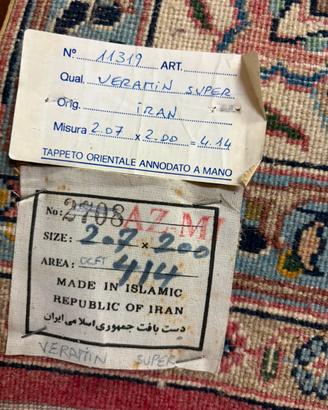 N° 11319 ART.
Qual. VERAMIN SUPER
Orig. iRAN
Misura 2.07 x 2.00 = 4.14
TAPPETO ORIENTALE ANNODATO A MANO
No: 2708 AZ-M
SIZE: 2.07 x 200
AREA: 414
MADE IN ISLAMIC
REPUBLIC OF IRAN
دست بافت جمهوری اسلامی ایران
VERAMIN SUPER